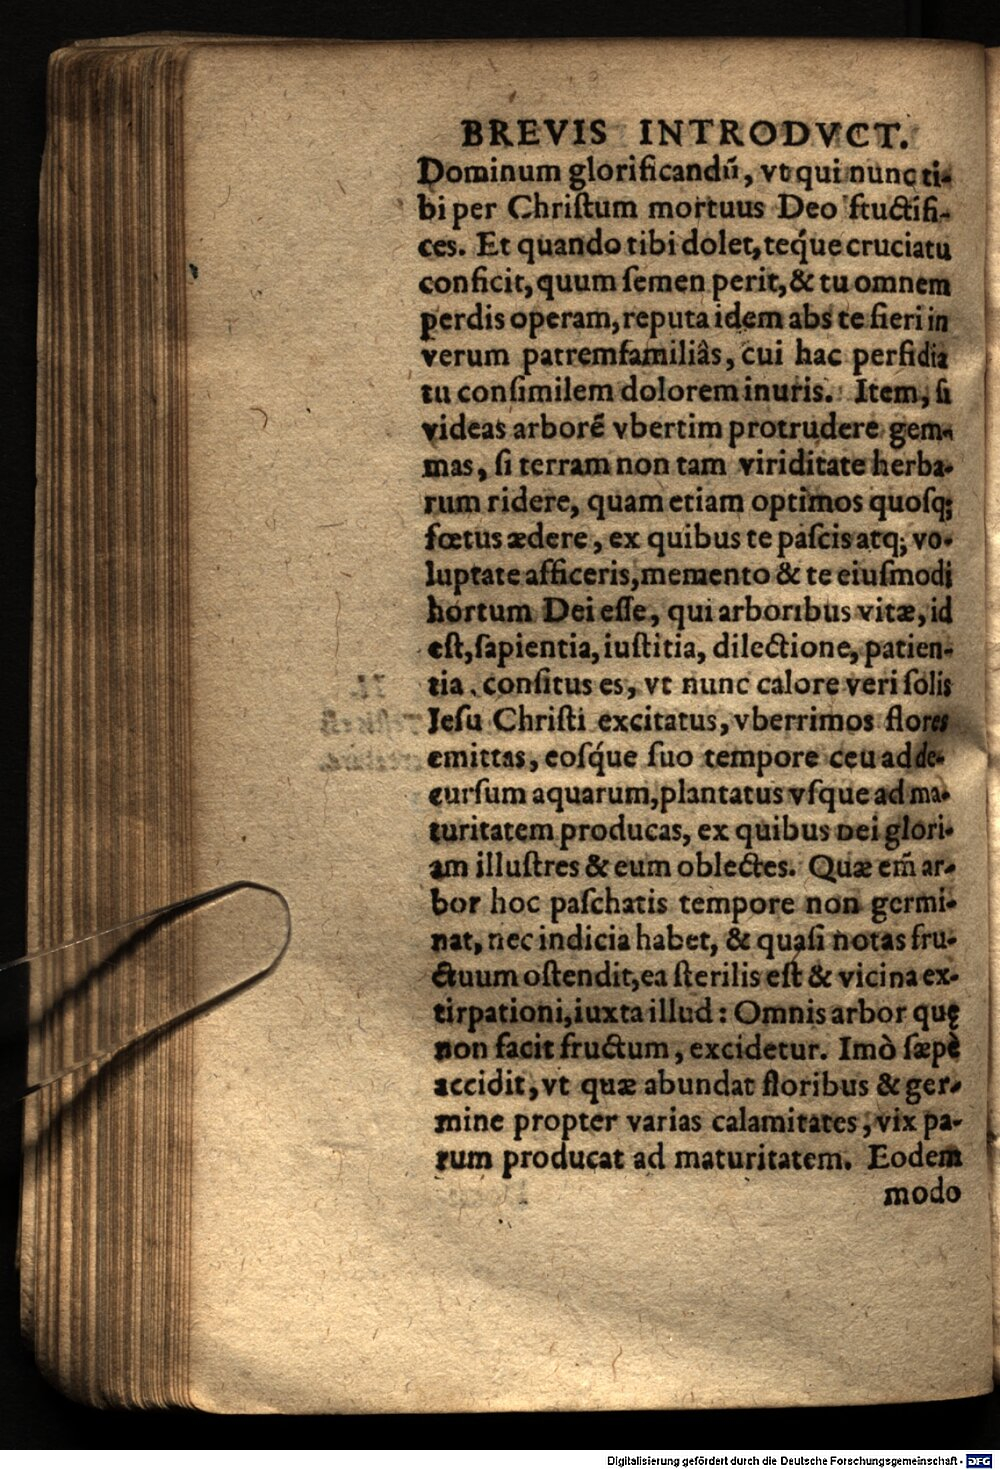 BREVIS INTRODVCT.
Dominum glorificandū, vt qui nunc ti-
bi per Chriſtum mortuus Deo fructifi-
ces. Et quando tibi dolet, teq́ue cruciatu
conficit, quum ſemen perit, & tu omnem
perdis operam, reputa idem abs te fieri in
verum patremfamiliâs, cui hac perfidia
tu conſimilem dolorem inuris. Item, ſi
videas arborẽ vbertim protrudere gem-
mas, ſi terram non tam viriditate herba-
rum ridere, quam etiam optimos quoſq;
fœtus ædere, ex quibus te paſcis atq; vo-
luptate afficeris, memento & te eiuſmodi
hortum Dei eſſe, qui arboribus vitæ, id
eſt, ſapientia, iuſtitia, dilectione, patien-
tia, conſitus es, vt nunc calore veri ſolis
Jeſu Chriſti excitatus, vberrimos flores
emittas, eoſq́ue ſuo tempore ceu ad de-
curſum aquarum, plantatus vſque ad ma-
turitatem producas, ex quibus Dei glori-
am illuſtres & eum oblectes. Quæ em̃ ar-
bor hoc paſchatis tempore non germi-
nat, nec indicia habet, & quaſi notas fru-
ctuum oſtendit, ea ſterilis eſt & vicina ex-
tirpationi, iuxta illud: Omnis arbor quę
non facit fructum, excidetur. Imò ſæpè
accidit, vt quæ abundat floribus & ger-
mine propter varias calamitates, vix pa-
rum producat ad maturitatem. Eodem
modo
Digitalisierung gefördert durch die Deutsche Forschungsgemeinschaft - DFG